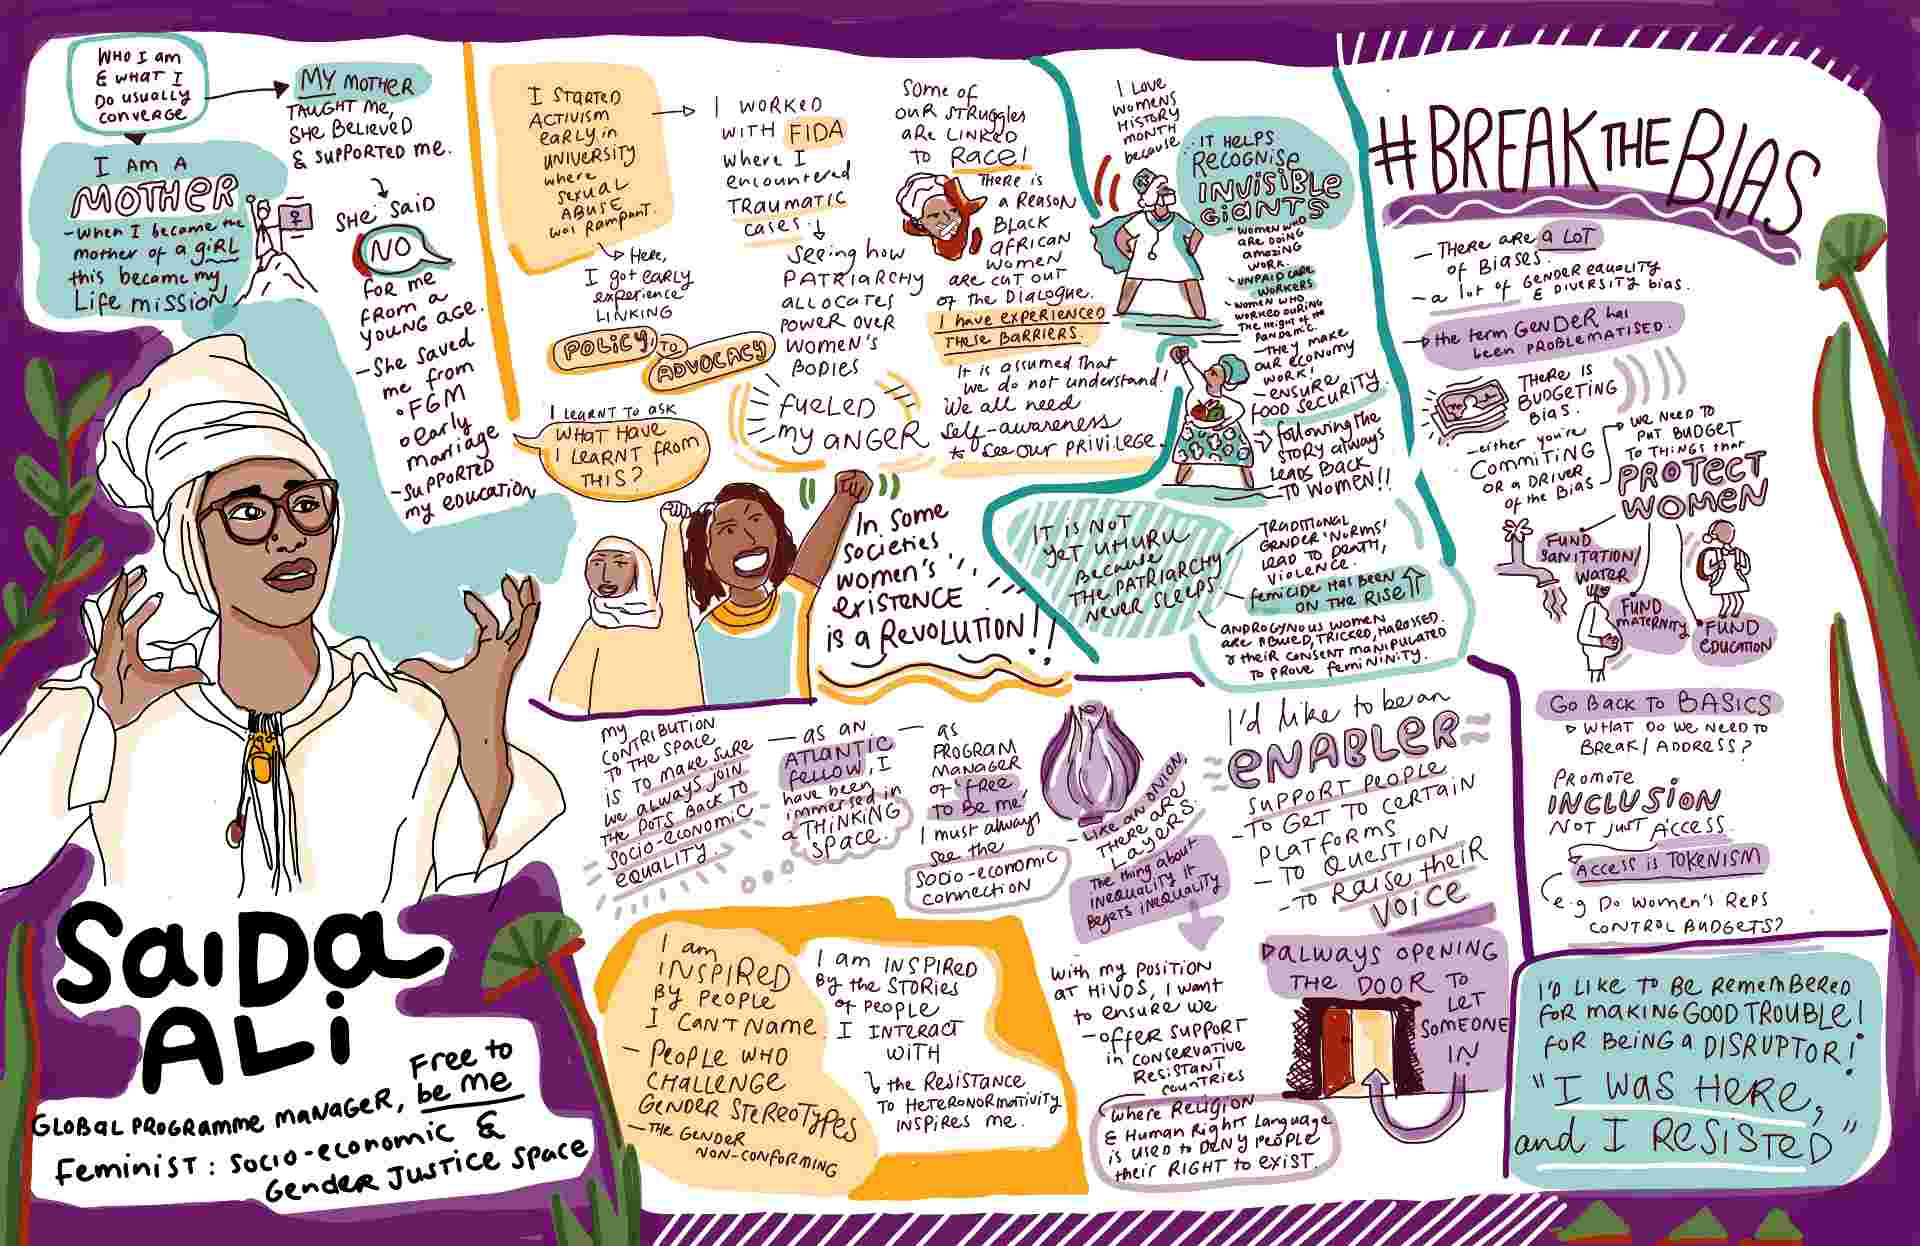 WHO I am
& WHAT I
DO USUALLY
CONVERGE
I AM A
MOTHER
- WHEN I became the
mother of a giRL
this became my
Life mission
MY MOTHER
TAUGHT Me,
SHE BELIEVED
& SUPPORTED me.
SHE SAID
NO
FOR me
FROM a
YOUNG AGE.
- She saved
me from
• FGM
• early
marriage
- SUPPORTED
my education
SaiDa
ALi
GLOBAL PROGRAMME MANAGER, Free to
be me &
Feminist: SOCIO-economic &
Gender JUSTICE SPace
I STARTED
ACTIVISM
early in
UNIVERSITY
where
SEXUAL
ABUSE
was Rampant.
Here,
I got early
experience
LINKING
POLICY TO
ADVOCACY
I LEARNT TO ASK
WHAT HAVE
I LEARNT FROM
THIS?
I WORKED
WITH FIDA
where I
encountered
TRAUMATIC
CASES.
Seeing how
PATRIARCHY
ALLOCATES
POWER OVER
WOMEN'S
BODIES
FUELED
MY ANGER
In some
societies
women's
existence
is a REVOLUTION!!
Some of
OUR STRUGGLES
are LINKED
to RACE!
THERE IS
a REASON
BLACK
AFRICAN
WOMEN
are CUT OUT
of the DIALOGUE.
I have experienced
These BARRIERS.
It is assumed that
we do not understand!
We all need
Self-awareness
to see our PRIVILEGE.
I LOVE
WOMENS
HISTORY
MONTH
because
..IT HELPS
RECOGNISE
INVISIBLE
GIANTS
- WOMEN WHO
ARE DOING
amazing
WORK.
- UNPAID CARE
WORKERS
- WOMEN WHO
WORKED DURING
THE height of the
PANDEMIC.
- THEY MAKE
OUR ECONOMY
WORK!
- ENSURE
FOOD SECURITY.
following the
STORY always
LEADS BACK
TO WOMEN!!
IT IS NOT
YET UHURU
because
THE PATRIARCHY
NEVER SLEEPS.
TRADITIONAL
GENDER 'NORMS'
LEAD TO DEATH,
VIOLENCE.
femicide HAS BEEN
ON THE RISE
ANDROGYNOUS WOMEN
are ABUSED, TRICKED, HARASSED.
& their CONSENT MANIPULATED
TO PROVE FEMININITY.
#BREAKTHEBIAS
- THERE ARE a LOT
of BIASES.
- a lot of GENDER EQUALITY
& DIVERSITY bias.
the term GENDER has
been PROBLEMATISED.
THERE IS
BUDGETING
BIAS.
- either you're
COMMITING
OR a DRIVER
of the BIAS
WE NEED TO
PUT BUDGET
TO THINGS that
PROTECT
WOMEN
FUND
SANITATION/
WATER
FUND
MATERNITY
FUND
EDUCATION
GO BACK TO BASICS
WHAT DO WE NEED TO
BREAK/ADDRESS?
PROMOTE
INCLUSION
NOT JUST ACCESS.
ACCESS IS TOKENISM
e.g DO WOMEN'S REPS
CONTROL BUDGETS?
my
CONTRIBUTION
TO THE SPACE
IS TO make SURE
we always JOIN
THE DOTS BACK TO
SOCIO-economic
EQUALITY.
- as an
ATLANTIC
fellow, I
have been
immersed in
a THINKING
SPACE.
- as
PROGRAM
MANAGER
of 'FREE
TO BE ME'
I must always
see the
SOCIO-economic
connection
- LIKE AN ONION,
THERE ARE
LAYERS
The thing about
INEQUALITY IT
BEGETS INEQUALITY
I'd like to be an
ENABLER
SUPPORT PEOPLE
- TO GET TO CERTAIN
PLATFORMS
- TO QUESTION
- TO RAISE THEIR
VOICE
ALWAYS OPENING
THE DOOR TO
LET
SOMEONE
IN
I am
INSPIRED
BY PEOPLE
I CAN'T NAME
- PEOPLE WHO
CHALLENGE
GENDER STEREOTYPES
- THE GENDER
NON-CONFORMING
I am INSPIRED
By the STORIES
of PEOPLE
I INTERACT
WITH
the RESISTANCE
TO HETERONORMATIVITY
INSPIRES me.
with my POSITION
AT HIVOS, I want
to ensure we
- OFFER SUPPORT
in CONSERVATIVE
RESISTANT
COUNTRIES
where RELIGION
& HUMAN RIGHT Language
is used to DENY PEOPLE
their RIGHT to exist.
I'D LIKE TO BE REMEMBERED
FOR making GOOD TROUBLE!
FOR BEING a DISRUPTOR!
"I WAS HERE,
and I RESISTED"